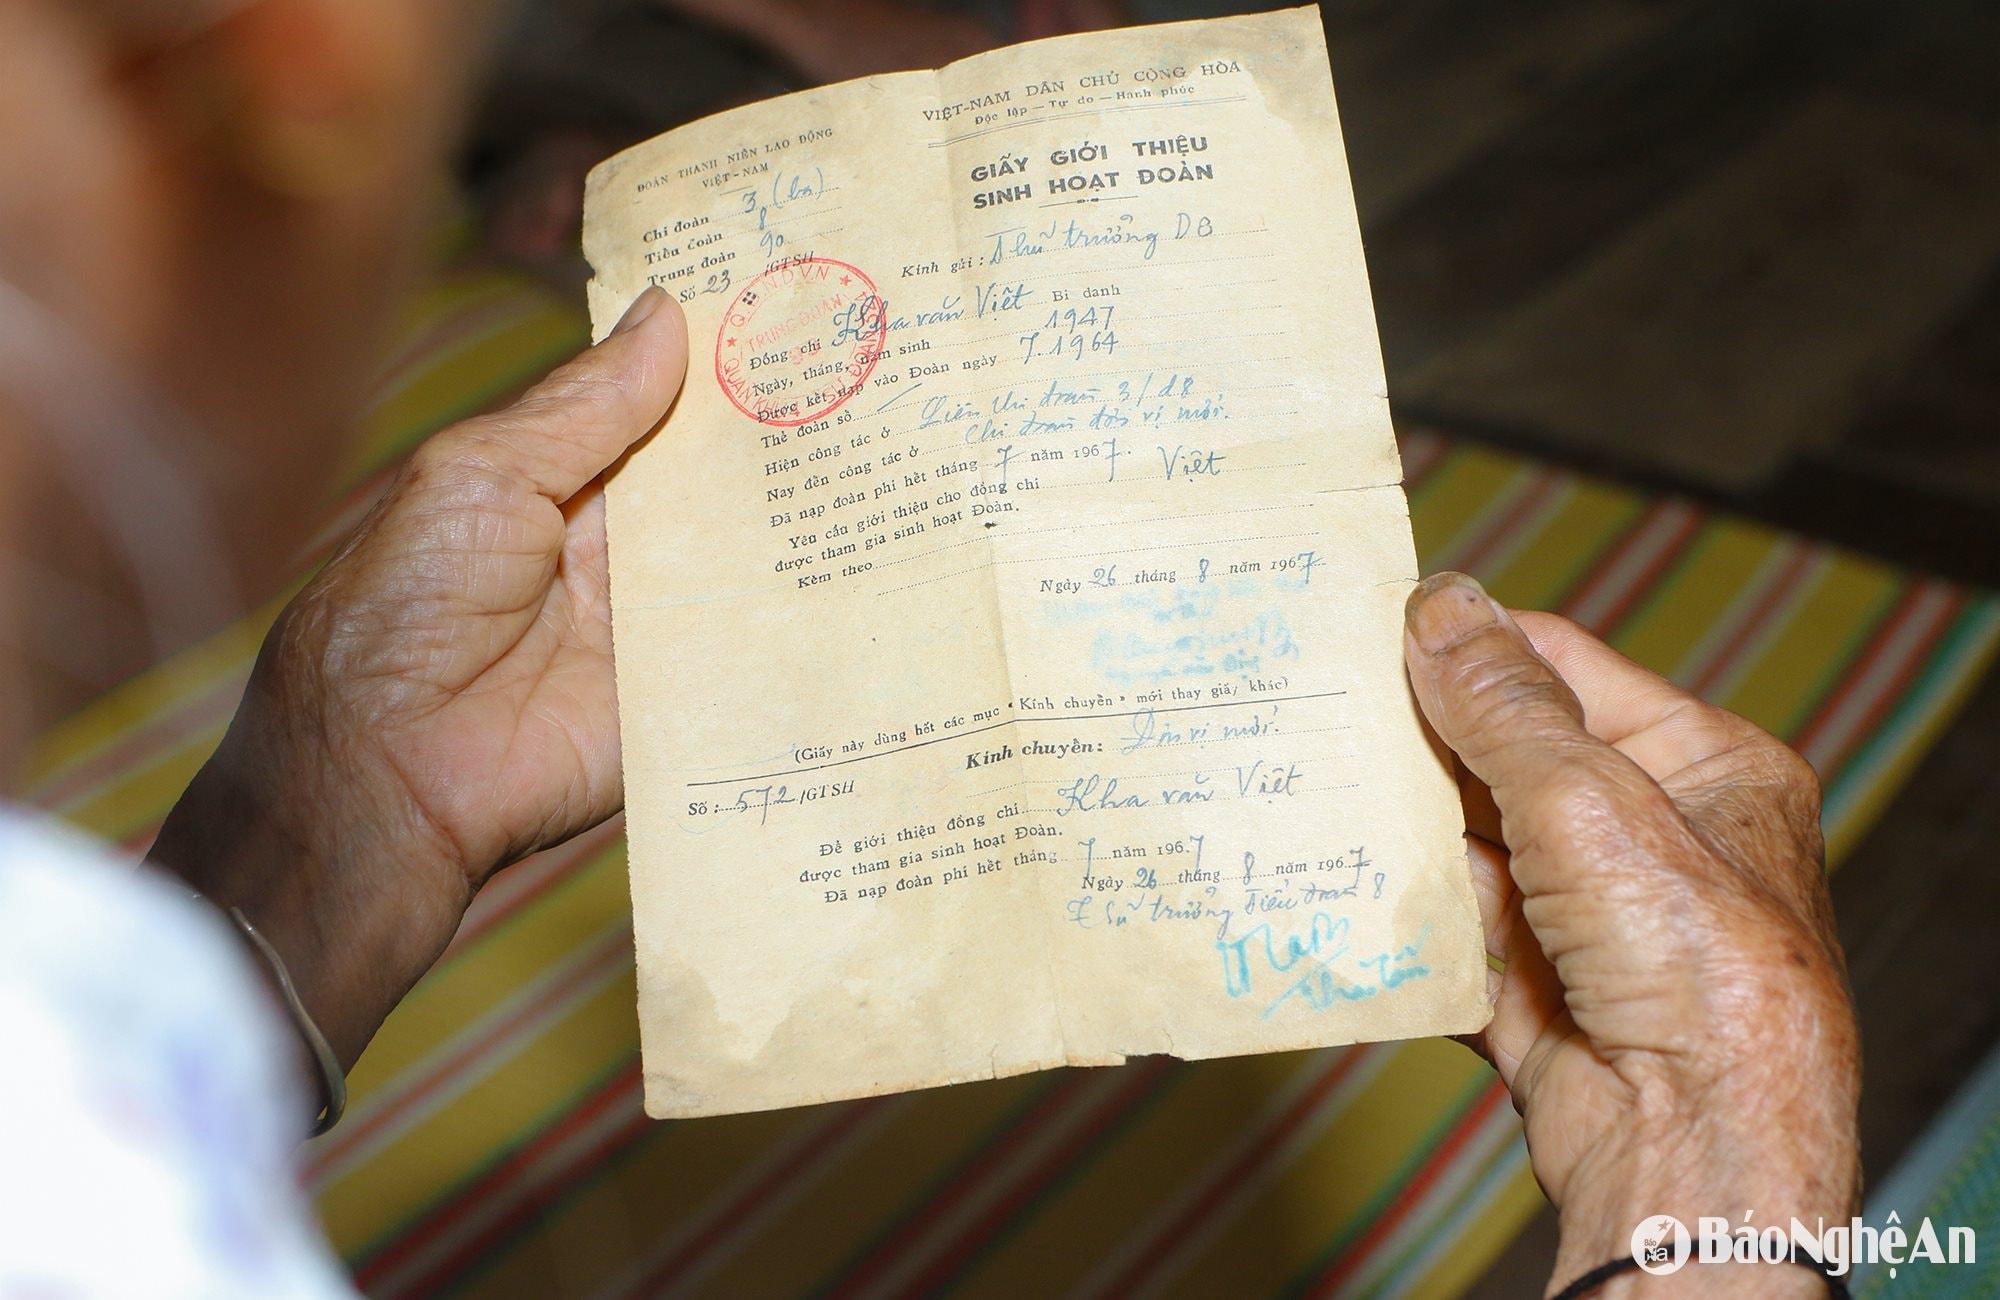 ĐOÀN THANH NIÊN LAO ĐỘNG
VIỆT-NAM
Chi đoàn 3 (ba)
Tiểu đoàn 8
Trung đoàn 90
Số 23 /GTSH
VIỆT-NAM DÂN CHỦ CỘNG HÒA
Độc lập — Tự do — Hạnh phúc
GIẤY GIỚI THIỆU
SINH HOẠT ĐOÀN
Kính gửi : Thủ trưởng D8
Q.Đ.N.D.V.N
TRUNG ĐOÀN
QUÂN KHU
Đồng chí Kha văn Việt Bí danh
Ngày, tháng, năm sinh 1947
Được kết nạp vào Đoàn ngày 7.1964
Thẻ đoàn số
Hiện công tác ở Liên chi đoàn 3/d8
Nay đến công tác ở chi đoàn đơn vị mới.
Đã nạp đoàn phí hết tháng 7 năm 1967.
Yêu cầu giới thiệu cho đồng chí Việt
được tham gia sinh hoạt Đoàn.
Kèm theo
Ngày 26 tháng 8 năm 1967
(Giấy này dùng hết các mục « Kính chuyển » mới thay giấy khác)
Kính chuyển: Đơn vị mới.
Số : 572/GTSH
Để giới thiệu đồng chí Kha văn Việt
được tham gia sinh hoạt Đoàn.
Đã nạp đoàn phí hết tháng 7 năm 1967
Ngày 26 tháng 8 năm 1967
trưởng Tiểu đoàn 8
Báo
Na
BáoNghệAn